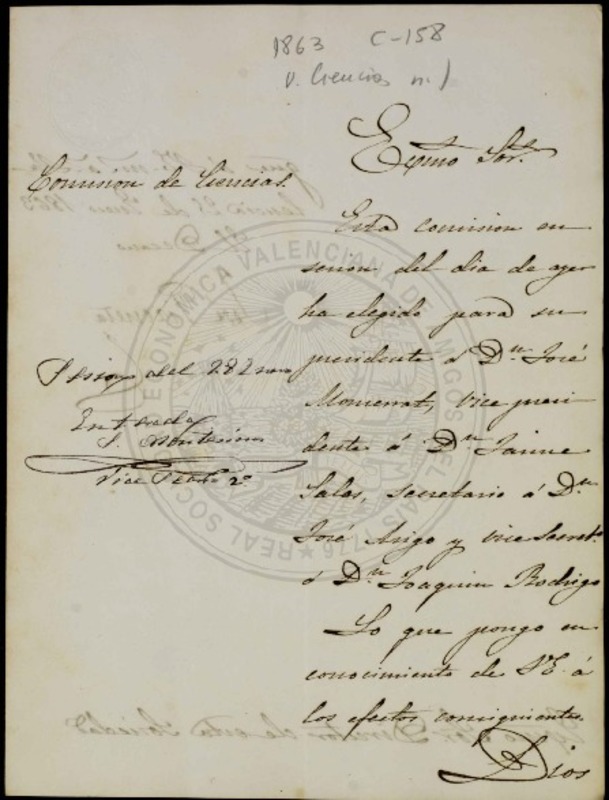 1863 C-158
V. Ciencias n. 1
Exmo Sor.
Comision de Ciencias.
Esta comision en
sesion del dia de ayer
ha elegido para su
presidente á Dn. José
Monserrat, Vice presi
dente á Dn. Jaime
Salas, secretario á Dn.
José Arigo y vice Secret.
á Dn. Joaquin Rodrigo
Lo que pongo en
conocimiento de V.E. á
los efectos consiguientes.
Dios
Sesion del 28 Enero
Enterada
Vice 2o.
REAL SOCIEDAD ECONOMICA VALENCIANA DE AMIGOS DEL PAIS 1776